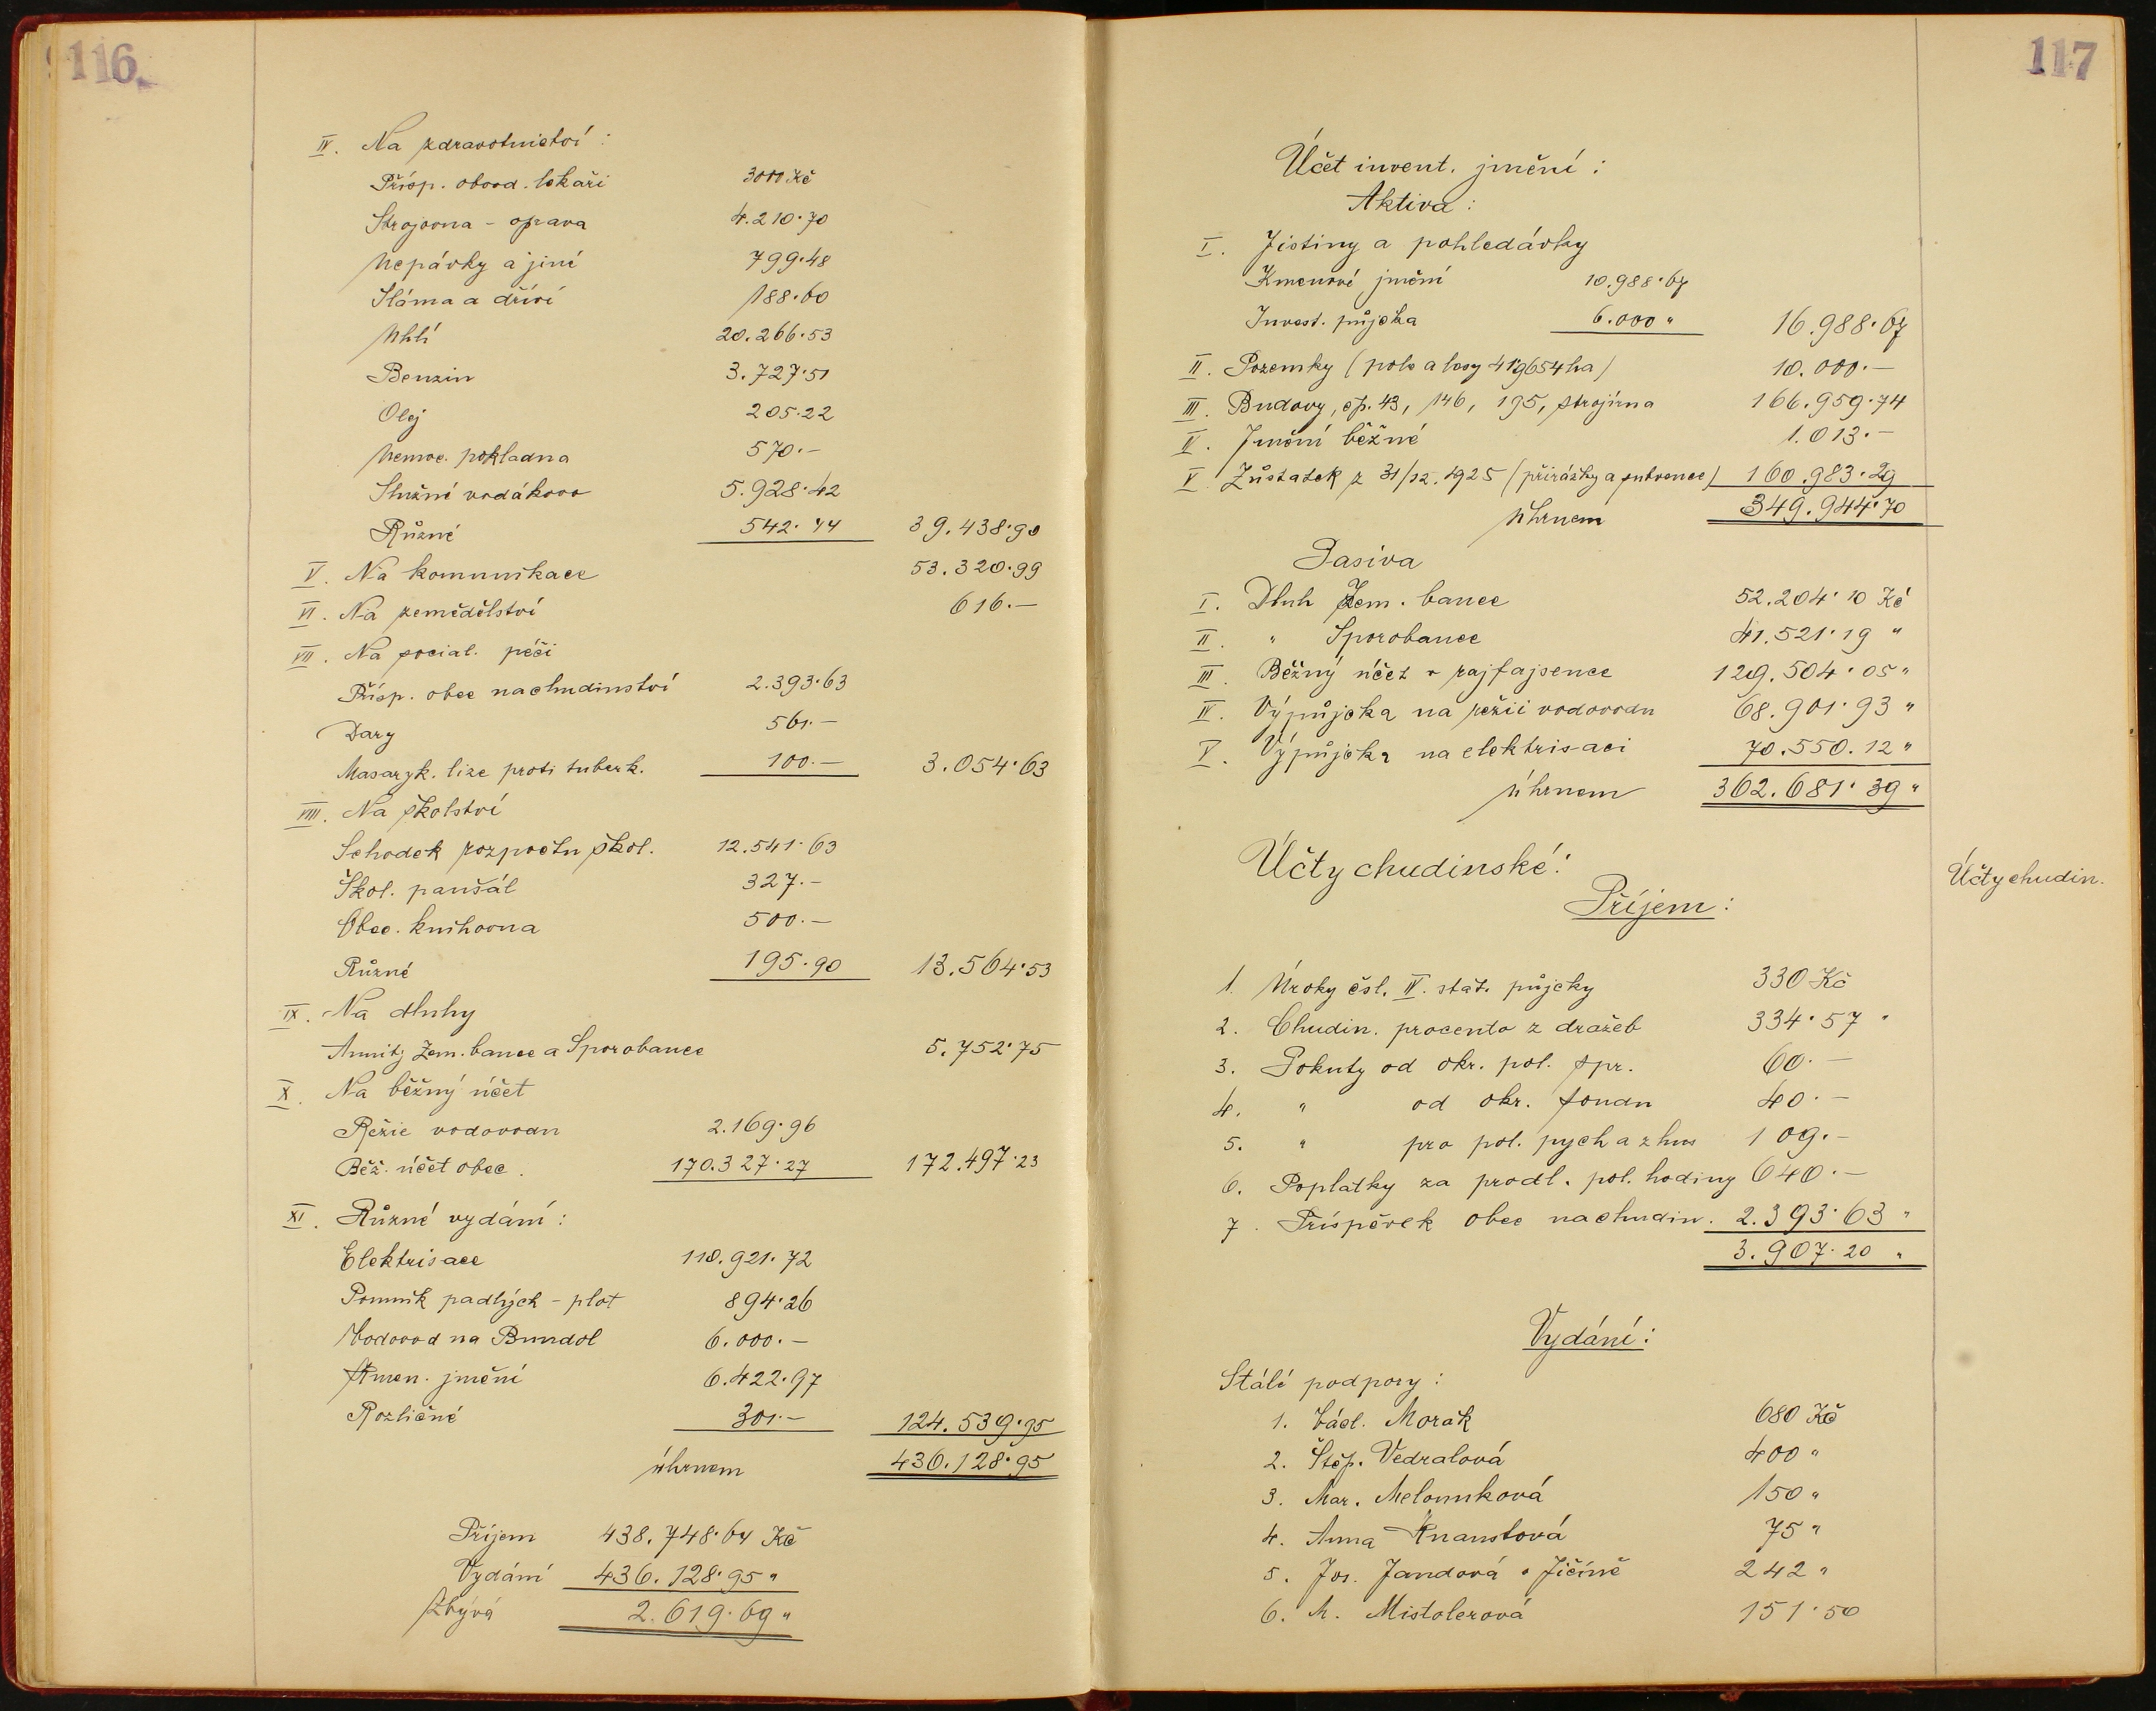 116.
IV. Na zdravotnictví:
Přísp. obvod. lékaři 3000 Kč
Strojovna - oprava 4.210·70
Nepávky a jiné 799·48
Sláma a dříví 188·60
Uhlí 20.266·53
Benzin 3.727·51
Olej 205·22
Nemoc. pokladna 570.—
Služné vodákovo 5.928·42
Různé 542·44 39.438·90
V. Na komunikace 53.320·99
VI. Na zemědělství 616.—
VII. Na social. péči
Přísp. obce na chudinství 2.393·63
Dary 561.—
Masaryk. lize proti tuberk. 100.— 3.054·63
VIII. Na školství
Schodek rozpočtu škol. 12.541·63
Škol. paušál 327.—
Obec. knihovna 500.—
Různé 195·90 13.564·53
IX. Na dluhy
Anuity Zem. bance a Sporobance 5.752·75
X. Na běžný účet
Režie vodovodu 2.169·96
Běž. účet obec. 170.327·27 172.497·23
XI. Různé vydání:
Elektrisace 110.921·72
Pomník padlých - plot 894·26
Vodovod na Bundol 6.000.—
Kmen. jmění 6.422·97
Rozličné 301.— 124.539·95
úhrnem 436.128·95
Příjem 438.748·64 Kč
Vydání 436.128·95 "
Zbývá 2.619·69 "
117
Účet invent. jmění:
Aktiva:
I. Jistiny a pohledávky
Kmenové jmění 10.988·67
Invest. půjčka 6.000 " 16.988·67
II. Pozemky (pole a lesy 41·9654 ha) 10.000.—
III. Budovy, čp. 43, 146, 195, strojírna 166.959·74
IV. Jmění běžné 1.013.—
V. Zůstatek z 31/12. 1925 (přirážky a subvence) 160.983·29
Uhrnem 349.944·70
Pasiva
I. Dluh Zem. bance 52.204·10 Kč
II. " Sporobance 41.521·19 "
III. Běžný účet v rajfajsence 129.504·05 "
IV. Výpůjčka na režii vodovodu 68.901·93 "
V. Výpůjčka na elektrisaci 70.550.12 "
úhrnem 362.681·39 "
Účty chudinské:
Účty chudin.
Příjem:
1. Úroky čsl. IV. stát. půjčky 330 Kč
2. Chudin. procento z dražeb 334·57 "
3. Pokuty od okr. pol. spr. 60.—
4. " od okr. fondu 40.—
5. " pro pol. pych a zhus 109.—
6. Poplatky za prodl. pol. hodiny 640.—
7. Príspěvek obce na chudin. 2.393·63 "
3.907·20 "
Vydání:
Stálé podpory:
1. Václ. Morák 680 Kč
2. Štěp. Vedralová 400 "
3. Mar. Melounková 150 "
4. Anna Knaustová 75 "
5. Jos. Jandová v Jičíně 242 "
6. M. Mistolerová 151·50